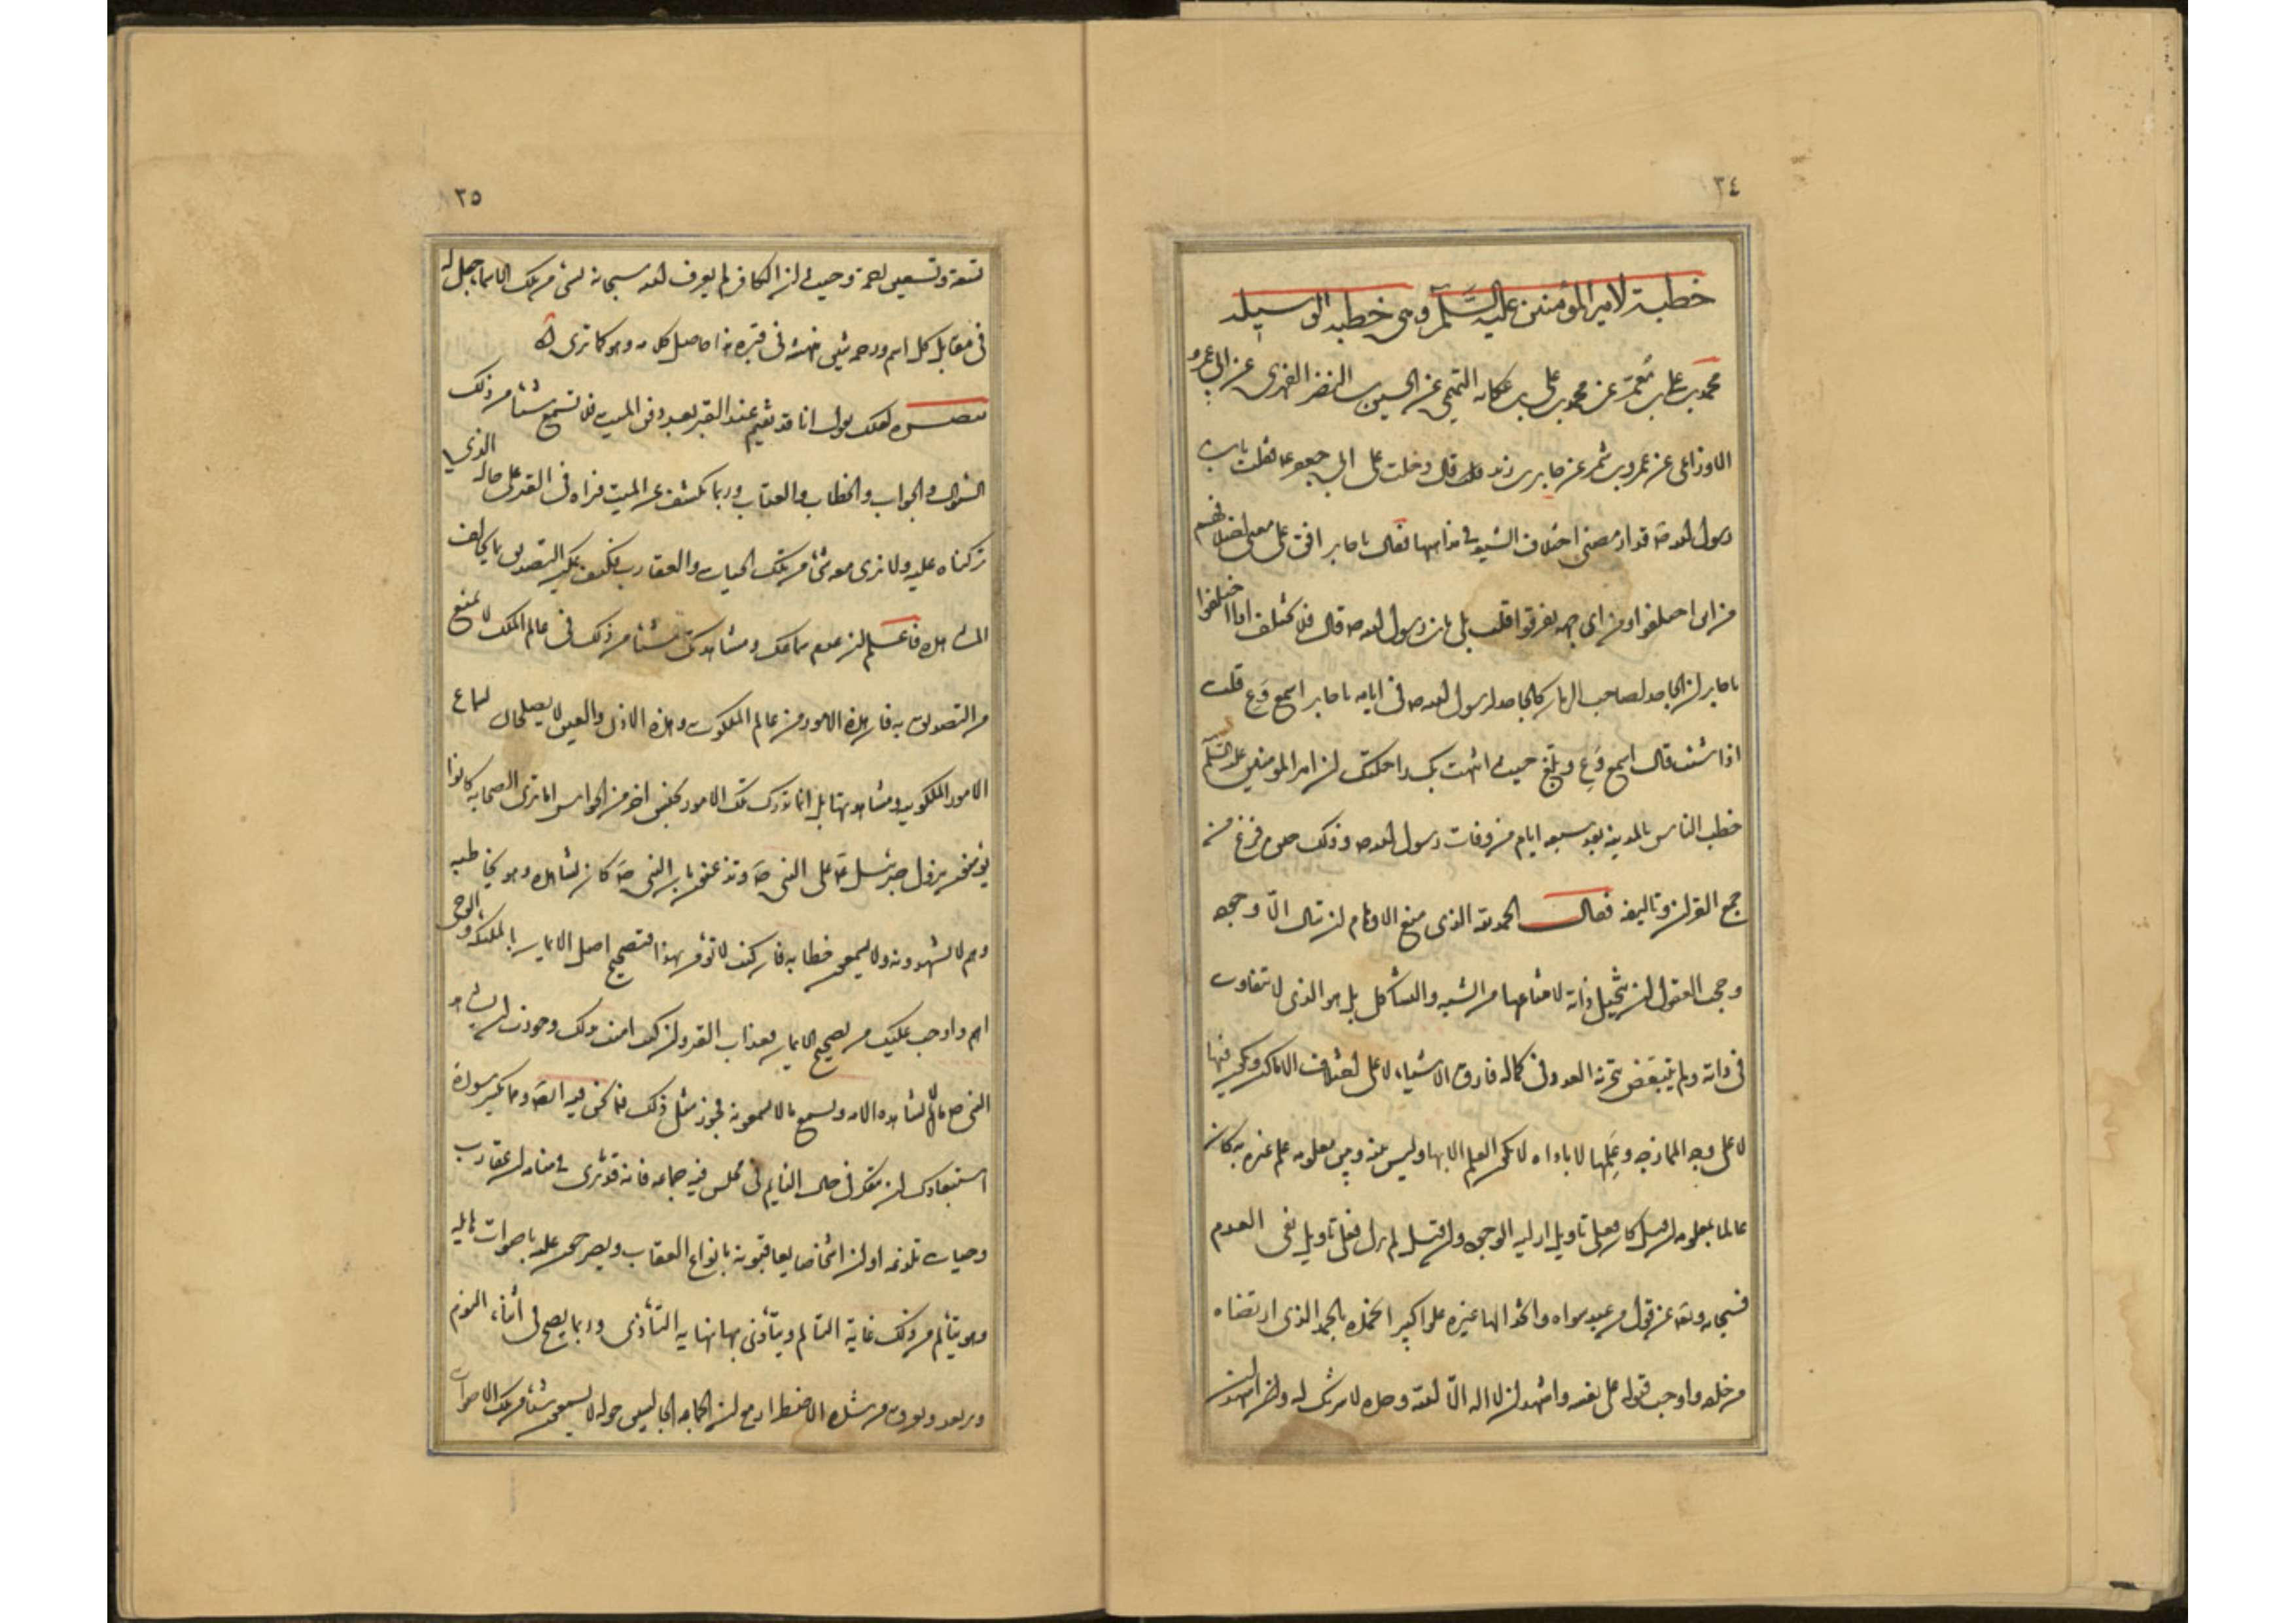 ٣٤
خطبة لامير المؤمنين عليه السلم وهى خطبة الوسيلة
محمد بن على بن معمر عن محمد بن على بن عكايه التميمى عن الحسين بن النضر الفهرى عن ابى عمرو
الاوزاعى عن عمرو بن شمر عن جابر بن يزيد قال دخلت على ابى جعفر ع فقلت يابن
رسول الله ص قد ارمضنى اختلاف الشيعه فى مذاهبها فقال يا جابر اقف على معنى اختلافهم
من اين اختلفوا ومن اى جهه تفرقوا قلت بلى يابن رسول الله ص قال فلا تختلف اذا اختلفوا
يا جابر ان الجاحد لصاحب الزمان كالجاحد لرسول الله ص فى ايامه يا جابر اسمع وع قلت
اذا شئت قال اسمع وع وبلغ حيث انتهت بك راحلتك ان امير المؤمنين عليه السلم
خطب الناس بالمدينه بعد سبعه ايام من وفات رسول الله ص وذلك حين فرغ من
جمع القران وتاليفه فقال الحمد لله الذى منع الاوهام ان تنال الا وجوده
وحجب العقول ان تتخيل ذاته لامتناعها من الشبه والتشاكل بل هو الذى لا تتفاوت
فى ذاته ولم يتبعض بتجزئه العدد فى كماله فارق الاشياء لا على اختلاف الاماكن ويكون فيها
لا على وجه الممازجه وعلمها لا باداه لا يكون العلم الا بها وليس بينه وبين معلومه علم غيره به كان
عالما بمعلومه ان قيل كان فعلى تاويل ازليه الوجود وان قيل لم يزل فعلى تاويل نفى العدم
فسبحانه وتعه عن قول من عبد سواه واتخذ الها غيره علوا كبيرا نحمده بالحمد الذى ارتضاه
من خلقه واوجب قبوله على نفسه واشهد ان لا اله الا الله وحده لا شريك له واشهد ان
١٣٥
تسعه وتسعين رحمة وحيث ان الكافر لم يعرف الله سبحانه بشئ من تلك الاسماء جعل له
فى مقابل كل اسم ورحمه تنين تنهشه فى قبره هذا حاصل كلامه وهو كما ترى
تبصره لعلك تقول انا قد نقيم عند القبر بعد دفن الميت فلا نسمع شيئا من ذلك
السؤال والجواب والخطاب والعتاب وربما نكشف عن الميت فنراه فى القبر على حاله الذى
تركناه عليه ولا نرى معه شئا من تلك الحيات والعقارب فكيف يمكن التصديق بما يخالف
المشاهده فاعلم ان عدم سماعك ومشاهدتك شيئا من ذلك فى عالم الملك لا يمنع
من التصديق به فان هذه الامور من عالم الملكوت وهذه الاذن والعين لا يصلحان لسماع
الامور الملكوتيه ومشاهدتها بل انما تدرك تلك الامور بجنس اخر من الحواس اما ترى الصحابه كانوا
يؤمنون بنزول جبرئيل ع على النبى ص وتذعنون بان النبى ص كان يشاهده وهو يخاطبه
وهم لا يشهدونه ولا يسمعون خطابه فان كنت لا تؤمن بهذا فتصحيح اصل الايمان بالملئكه والوحى
اهم واوجب عليك من تصحيح الايمان بعذاب القبر وان كنت امنت بذلك وجوزت ان يشاهد
النبى ص ما لا يشاهده الامه ويسمع ما لا يسمعونه فجوز مثل ذلك فيما نحن فيه ايضا ومما يكسر سورة
استبعادك ان تتفكر فى حال النايم فى مجلس فيه جماعه فانه قد يرى فى منامه ان عقارب
وحيات تلدغه او ان اشخاصا يعاقبونه بانواع العقاب ويصرخون عليه باصوات هايله
وهو يتألم من ذلك غاية التألم ويتأذى بها نهايه التأذى وربما يصيح فى أثناء النوم
ويرتعد ويعرق من شده الاضطراب مع ان الجماعه الجالسين حوله لا يسمعون شيئا من تلك الاصوات